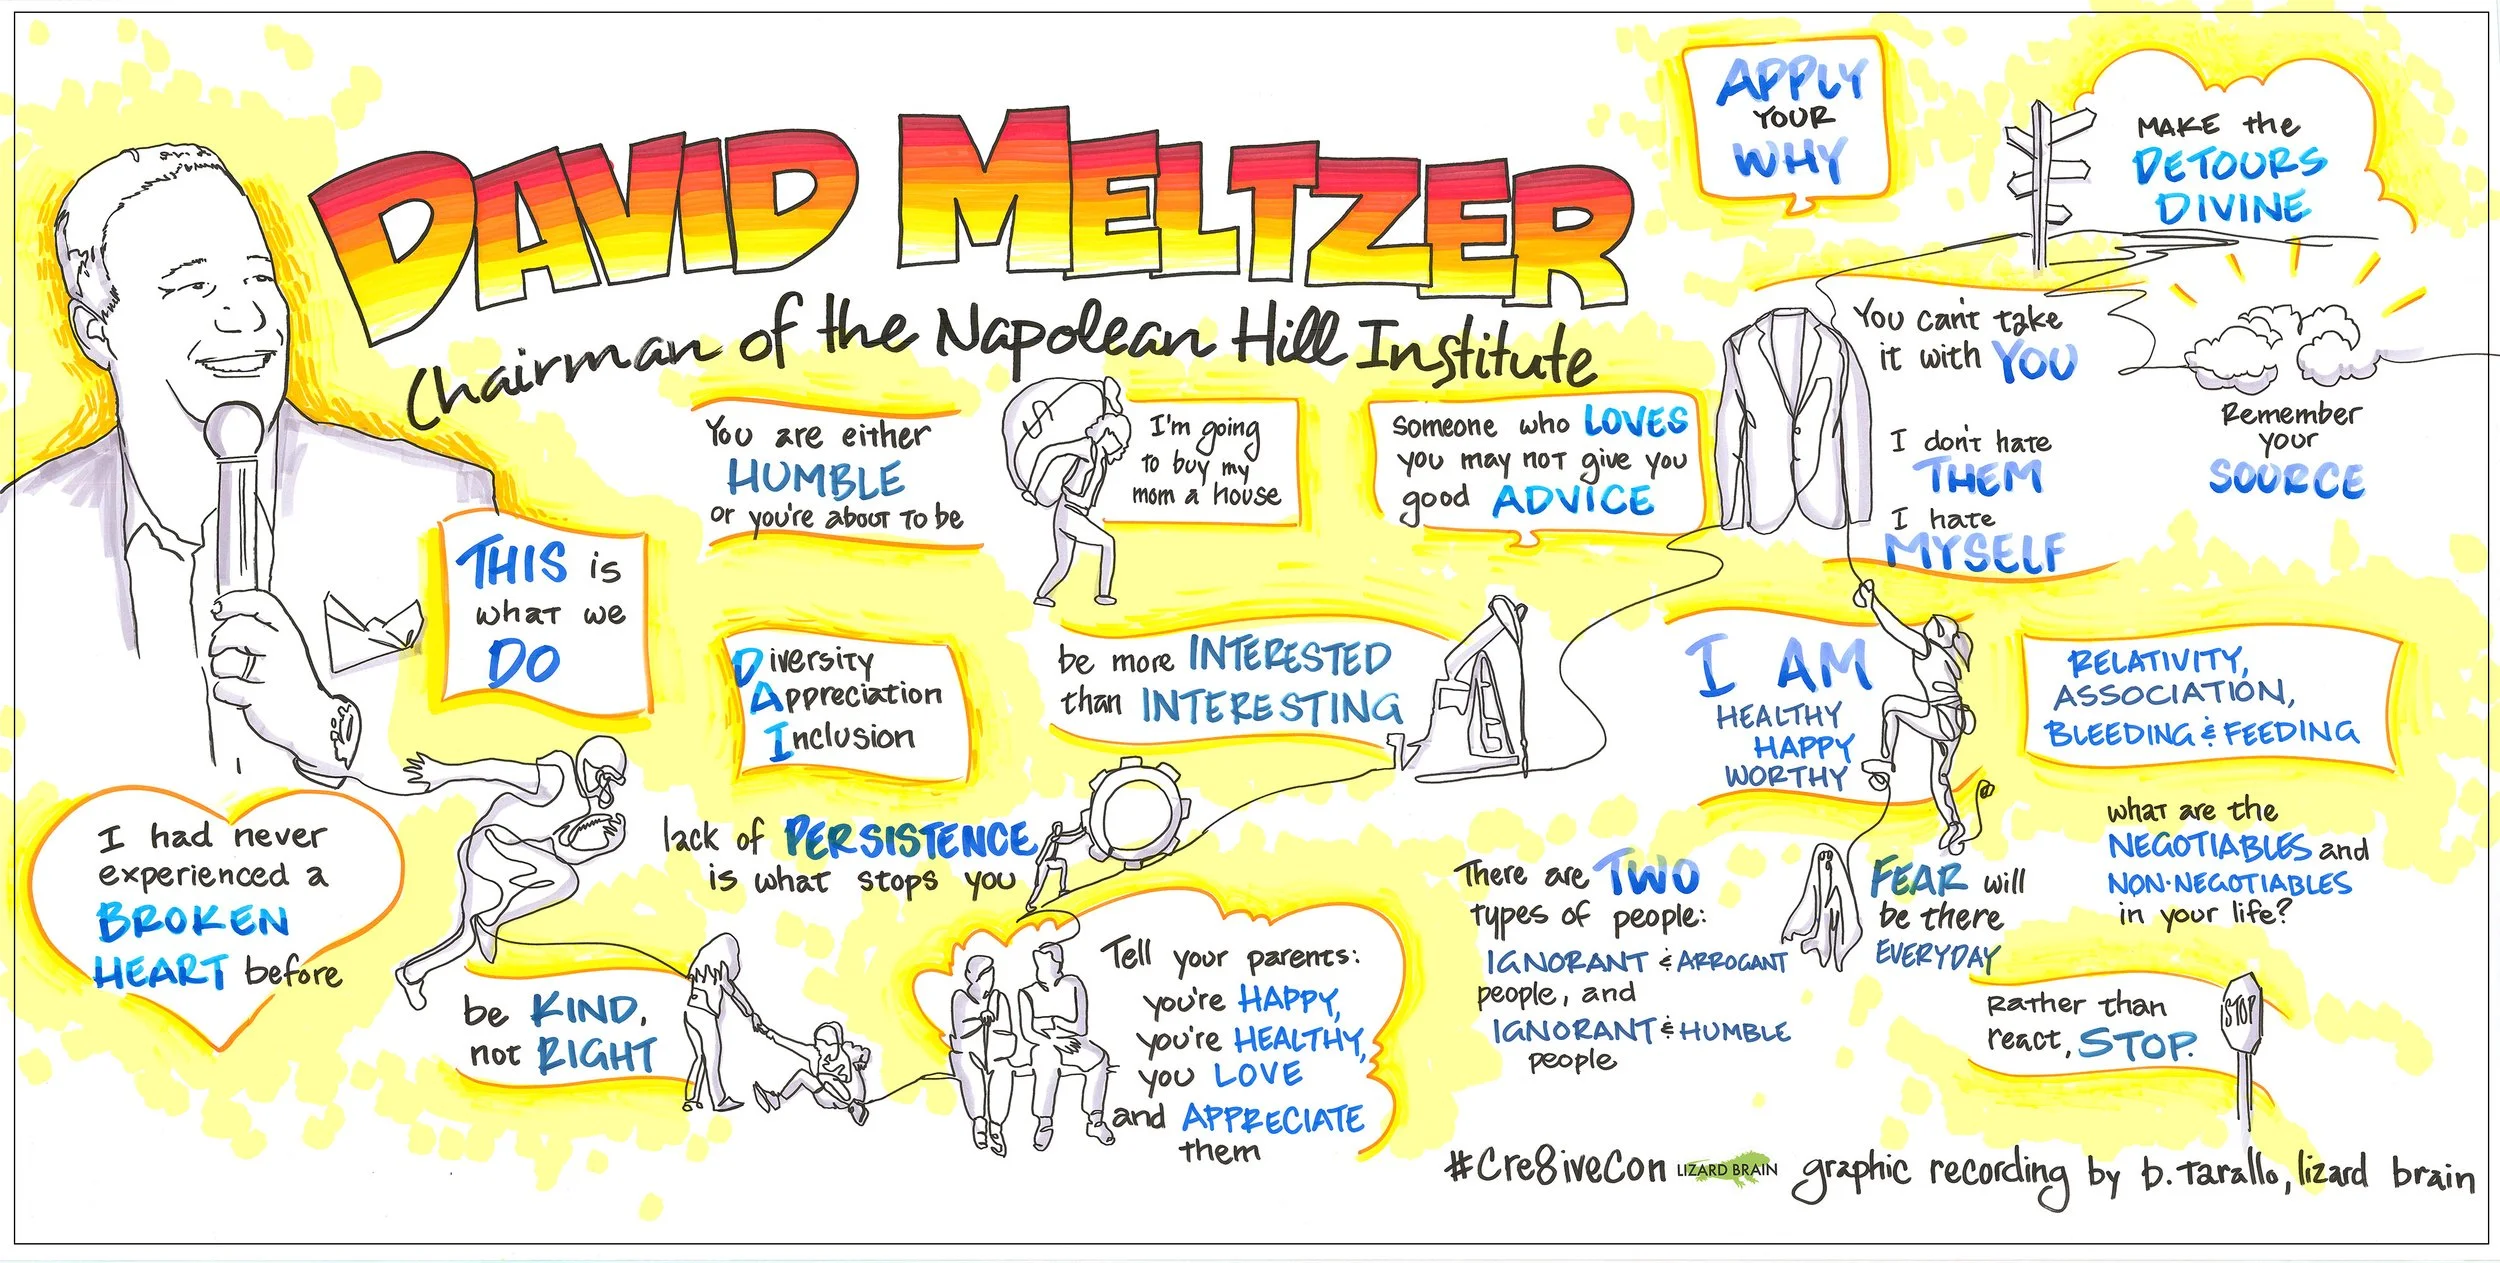 DAVID MELTZER
Chairman of the Napolean Hill Institute
APPLY
YOUR
WHY
MAKE the
DETOURS
DIVINE
You can't take
it with YOU
I don't hate
THEM
I hate
MYSELF
Remember
your
SOURCE
You are either
HUMBLE
or you're about to be
$
I'm going
to buy my
mom a house
someone who LOVES
you may not give you
good ADVICE
THIS is
what we
DO
Diversity
Appreciation
Inclusion
be more INTERESTED
than INTERESTING
I AM
HEALTHY
HAPPY
WORTHY
RELATIVITY,
ASSOCIATION,
BLEEDING & FEEDING
I had never
experienced a
BROKEN
HEART before
lack of PERSISTENCE
is what stops you
be KIND,
not RIGHT
Tell your parents:
you're HAPPY,
you're HEALTHY,
you LOVE
and APPRECIATE
them
There are TWO
types of people:
IGNORANT & ARROGANT
people, and
IGNORANT & HUMBLE
people
FEAR will
be there
EVERYDAY
what are the
NEGOTIABLES and
NON-NEGOTIABLES
in your life?
Rather than
react, STOP.
STOP
#Cre8iveCon LIZARD BRAIN graphic recording by b. tarallo, lizard brain